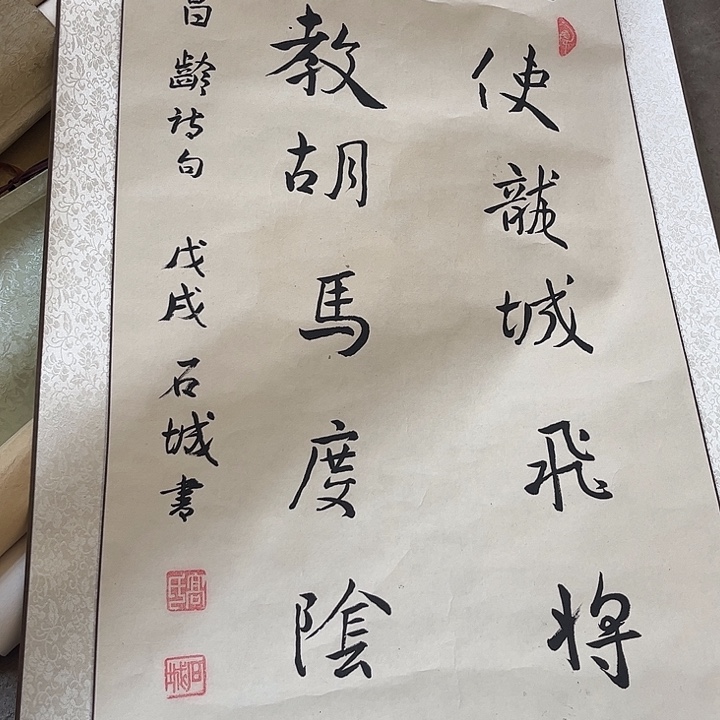 使龍城飛將
教胡馬度陰
昌齡詩句 戊戌 石城書